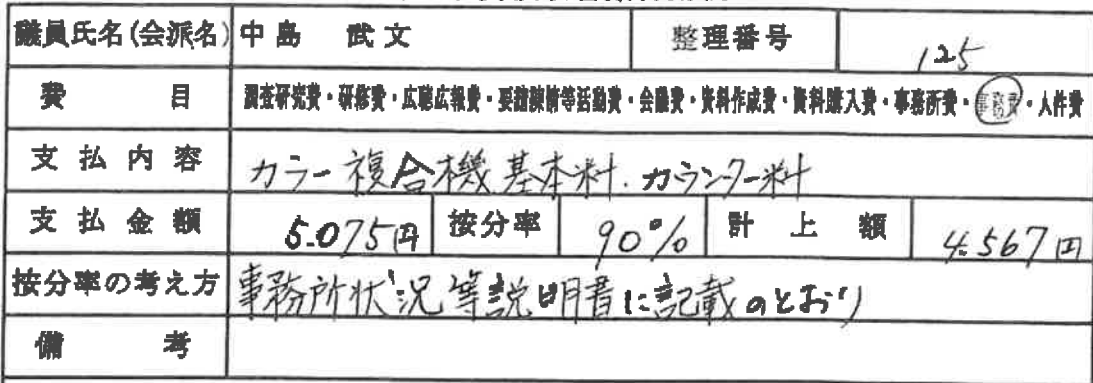 議員氏名(会派名) 中島 武文 整理番号 125
費目 調査研究費・研修費・広聴広報費・要請陳情等活動費・会議費・資料作成費・資料購入費・事務所費・事務費・人件費
支払内容 カラー複合機基本料.カウンター料
支払金額 5.075円 按分率 90% 計上額 4.567円
按分率の考え方 事務所状況等説明書に記載のとおり
備考